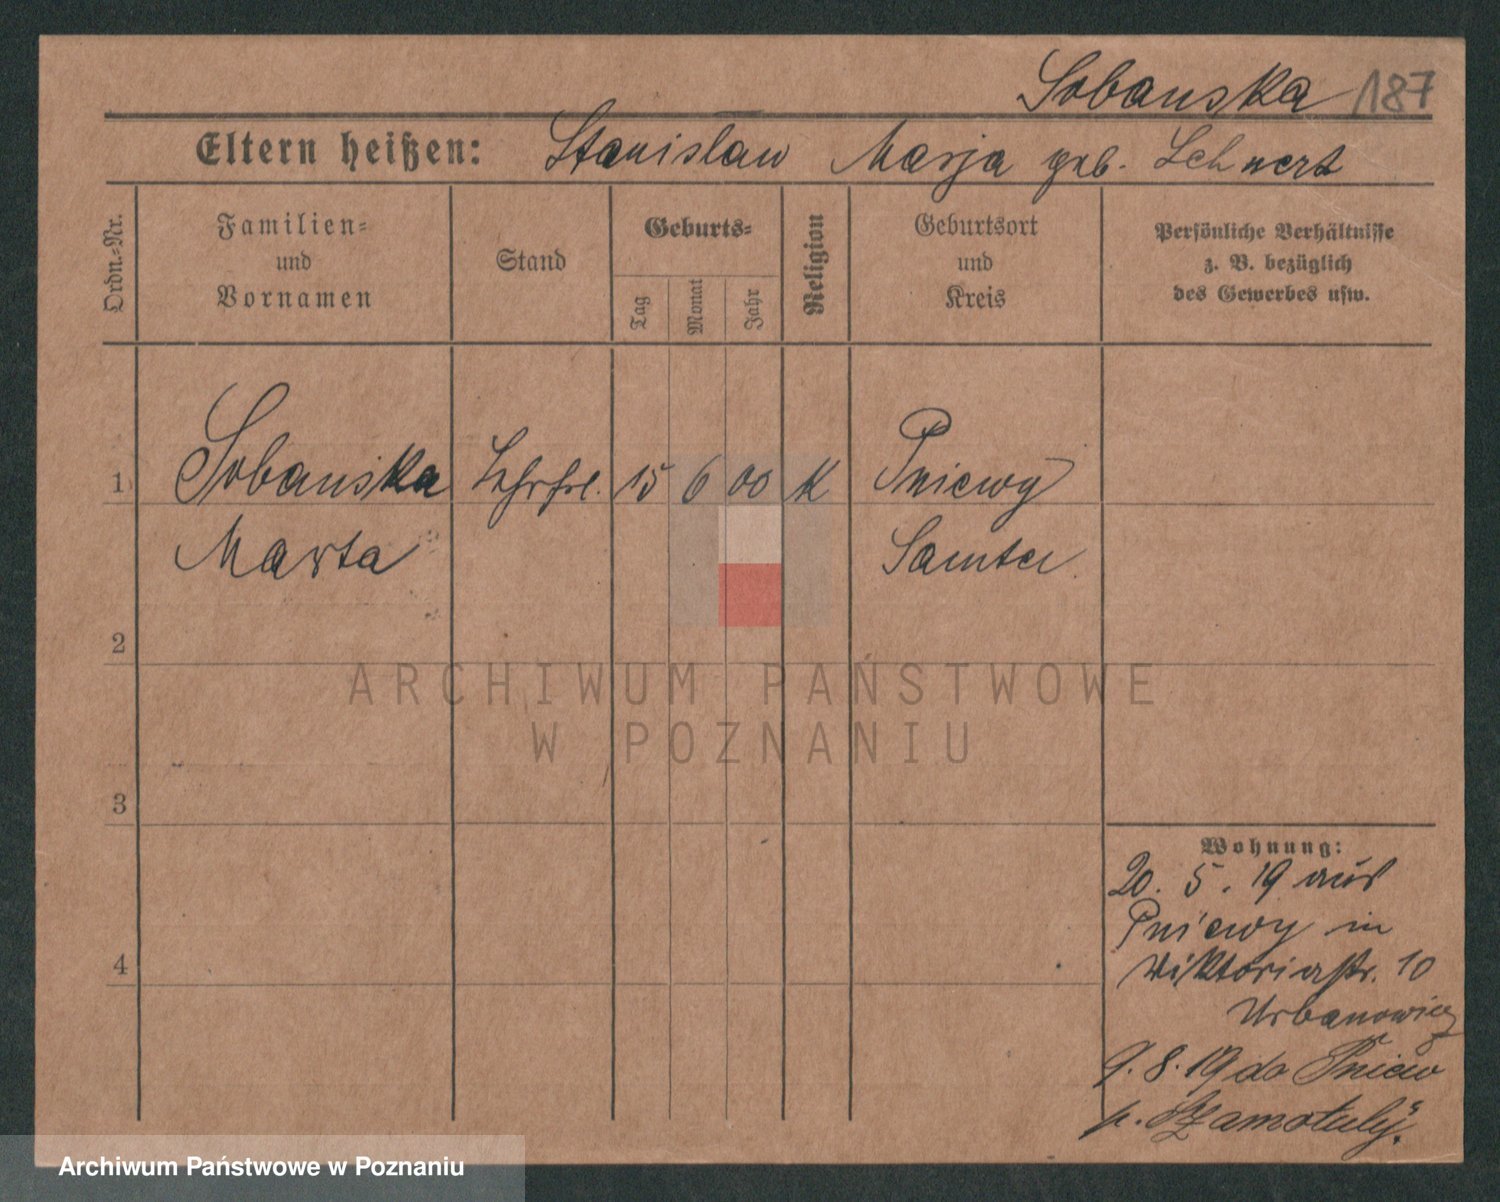 Sobanska 187
Eltern heißen: Stanislaw Marja geb. Lehnert
Ordn.-Nr.
Familien-
und
Vornamen
Stand
Geburts-
Tag
Monat
Jahr
Religion
Geburtsort
und
Kreis
Persönliche Verhältnisse
z. B. bezüglich
des Gewerbes usw.
1 Sobanska Lehrfrl. 15 6 00 K Pniewy
Marta Samter
2
3
4
Wohnung:
20. 5. 19 aus
Pniewy in
Viktoriastr. 10
Urbanowicz
9. 8. 19 do Pniew
p. Szamotuły.
ARCHIWUM PAŃSTWOWE
W POZNANIU
Archiwum Państwowe w Poznaniu